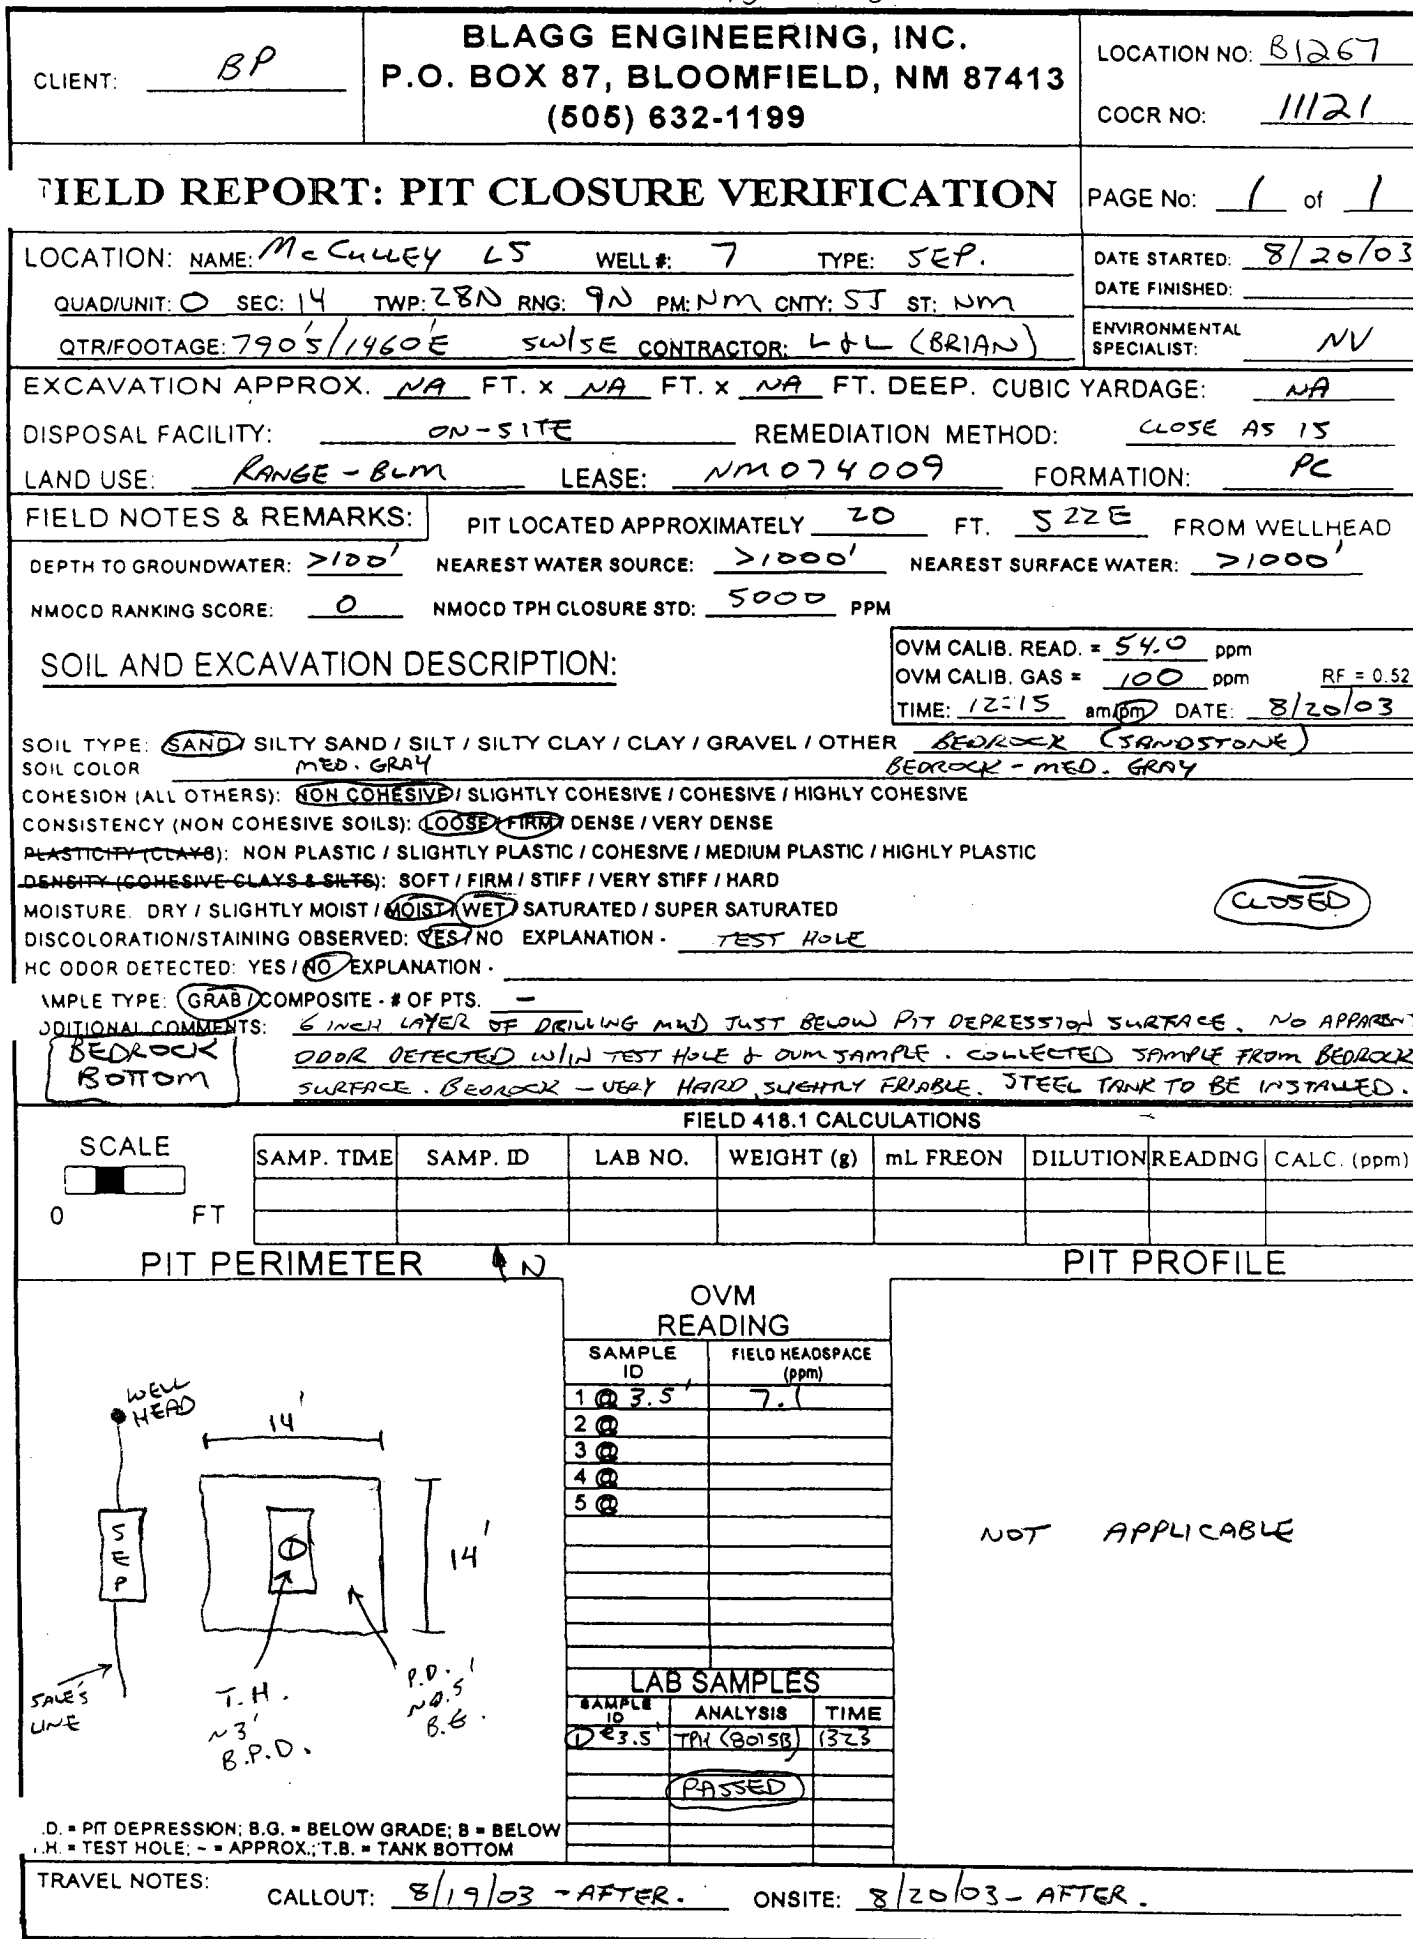 CLIENT: BP
BLAGG ENGINEERING, INC.
P.O. BOX 87, BLOOMFIELD, NM 87413
(505) 632-1199
LOCATION NO: B1267
COCR NO: 11121
FIELD REPORT: PIT CLOSURE VERIFICATION
PAGE No: 1 of 1
LOCATION: NAME: McCULLEY LS WELL #: 7 TYPE: SEP.
QUAD/UNIT: O SEC: 14 TWP: 28N RNG: 9N PM: NM CNTY: SJ ST: NM
QTR/FOOTAGE: 790'S/1460'E SW/SE CONTRACTOR: L & L (BRIAN)
DATE STARTED: 8/20/03
DATE FINISHED:
ENVIRONMENTAL
SPECIALIST: NV
EXCAVATION APPROX. NA FT. x NA FT. x NA FT. DEEP. CUBIC YARDAGE: NA
DISPOSAL FACILITY: ON-SITE REMEDIATION METHOD: CLOSE AS IS
LAND USE: RANGE - BLM LEASE: NM074009 FORMATION: PC
FIELD NOTES & REMARKS: PIT LOCATED APPROXIMATELY 20 FT. S22E FROM WELLHEAD
DEPTH TO GROUNDWATER: >100' NEAREST WATER SOURCE: >1000' NEAREST SURFACE WATER: >1000'
NMOCD RANKING SCORE: 0 NMOCD TPH CLOSURE STD: 5000 PPM
SOIL AND EXCAVATION DESCRIPTION:
OVM CALIB. READ. = 54.0 ppm
OVM CALIB. GAS = 100 ppm RF = 0.52
TIME: 12:15 am/pm DATE: 8/20/03
SOIL TYPE: SAND / SILTY SAND / SILT / SILTY CLAY / CLAY / GRAVEL / OTHER BEDROCK (SANDSTONE)
SOIL COLOR MED. GRAY BEDROCK - MED. GRAY
COHESION (ALL OTHERS): NON COHESIVE / SLIGHTLY COHESIVE / COHESIVE / HIGHLY COHESIVE
CONSISTENCY (NON COHESIVE SOILS): LOOSE / FIRM / DENSE / VERY DENSE
PLASTICITY (CLAYS): NON PLASTIC / SLIGHTLY PLASTIC / COHESIVE / MEDIUM PLASTIC / HIGHLY PLASTIC
DENSITY (COHESIVE CLAYS & SILTS): SOFT / FIRM / STIFF / VERY STIFF / HARD
MOISTURE: DRY / SLIGHTLY MOIST / MOIST / WET / SATURATED / SUPER SATURATED
CLOSED
DISCOLORATION/STAINING OBSERVED: YES / NO EXPLANATION - TEST HOLE
HC ODOR DETECTED: YES / NO EXPLANATION -
AMPLE TYPE: GRAB / COMPOSITE - # OF PTS. —
DDITIONAL COMMENTS: 6 INCH LAYER OF DRILLING MUD JUST BELOW PIT DEPRESSION SURFACE. NO APPARENT
BEDROCK BOTTOM
ODOR DETECTED W/IN TEST HOLE & OVM SAMPLE. COLLECTED SAMPLE FROM BEDROCK
SURFACE. BEDROCK - VERY HARD, SLIGHTLY FRIABLE. STEEL TANK TO BE INSTALLED.
SCALE
0 FT
FIELD 418.1 CALCULATIONS
SAMP. TIME SAMP. ID LAB NO. WEIGHT (g) mL FREON DILUTION READING CALC. (ppm)
PIT PERIMETER N
PIT PROFILE
OVM
READING
SAMPLE ID FIELD HEADSPACE (ppm)
1 @ 3.5' 7.1
2 @
3 @
4 @
5 @
WELL HEAD
14'
SEP
1
14'
NOT APPLICABLE
SALES LINE
T.H. ~3' B.P.D.
P.D. ~0.5' B.G.
LAB SAMPLES
SAMPLE ID ANALYSIS TIME
1 @ 3.5' TPH (8015B) 1323
PASSED
.D. = PIT DEPRESSION; B.G. = BELOW GRADE; B = BELOW
.H. = TEST HOLE; ~ = APPROX.; T.B. = TANK BOTTOM
TRAVEL NOTES: CALLOUT: 8/19/03 - AFTER. ONSITE: 8/20/03 - AFTER.